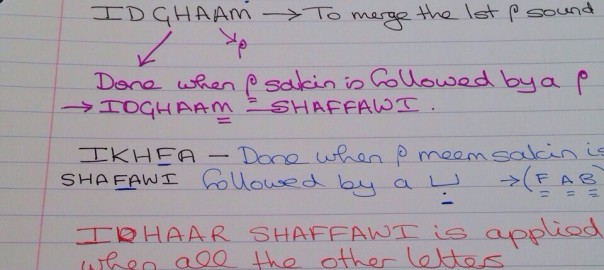 IDGHAAM → To merge the 1st م sound
م
Done when م sakin is followed by a م
→ IDGHAAM - SHAFFAWI.
IKHFA - Done when م meem sakin is
SHAFAWI followed by a ب → (F A B)
IDHAAR SHAFFAWI is applied
when all the other letters